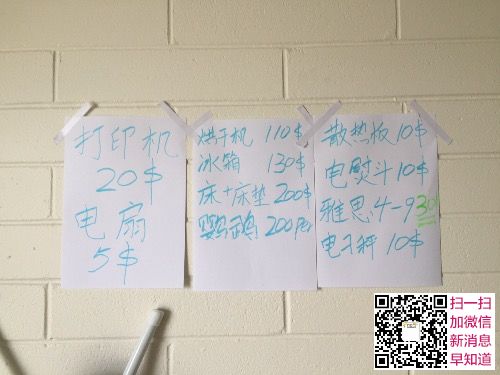 打印机
20$
电扇
5$
烘干机 110$
冰箱 130$
床+床垫 200$
鹦鹉 200
散热板 10$
电熨斗 10$
雅思4-9 30
电子秤 10$
扫一扫
加微信
新消息
早知道